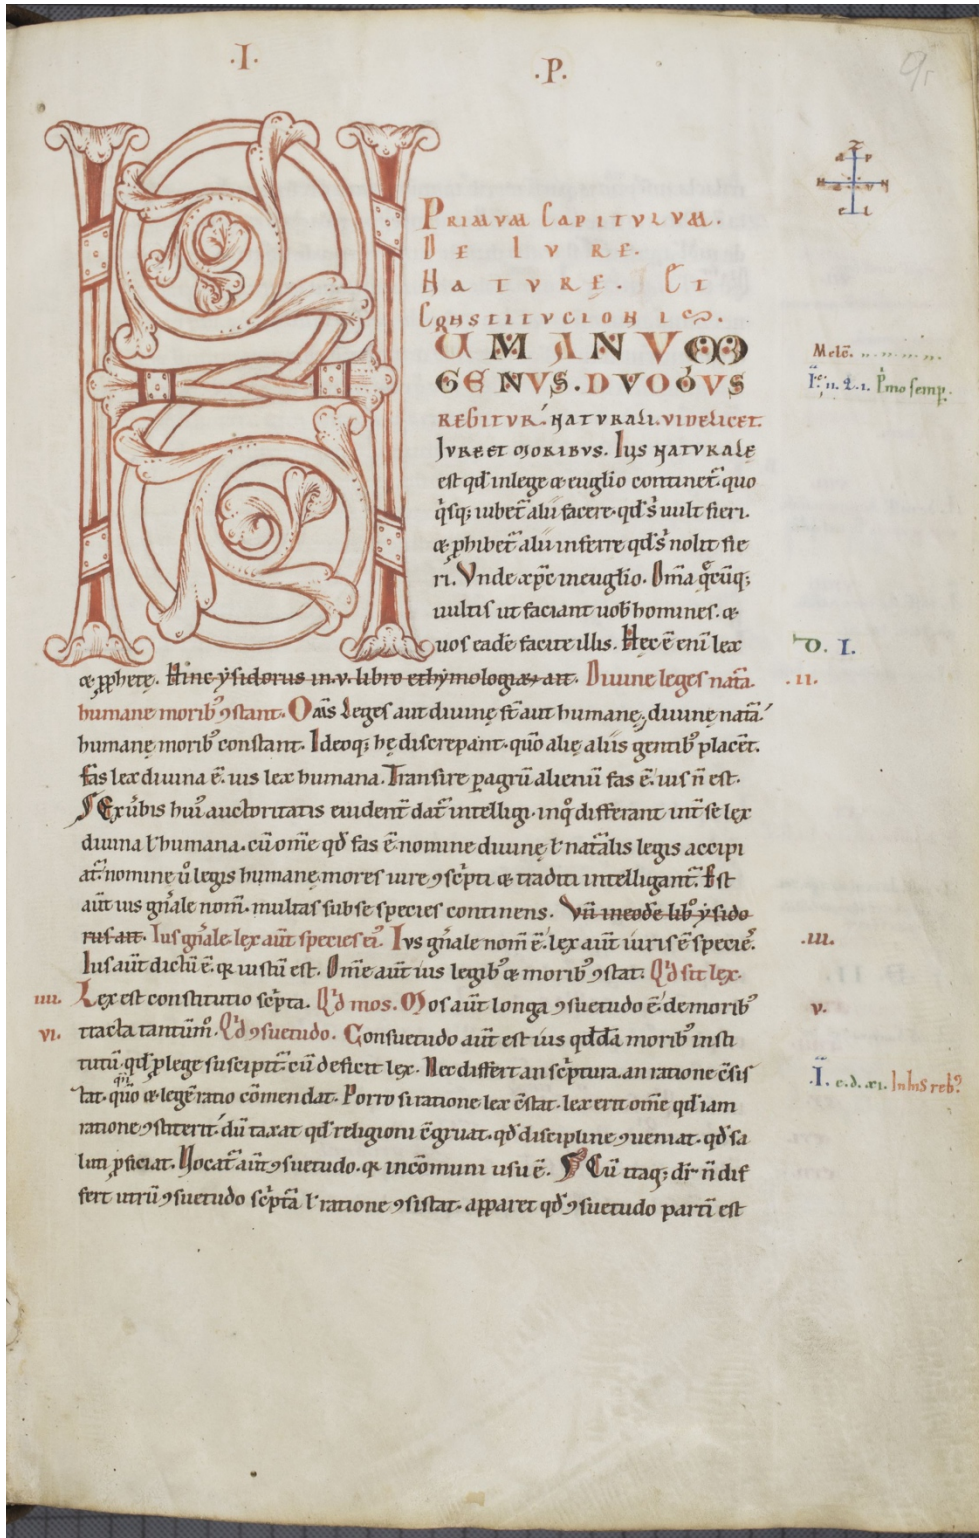 .I.
.P.
9r
PRIMVM CAPITVLVM.
DE IVRE.
NATVRE. ET
CONSTITVCIONIS.
HUMANVM
GENVS. DVOBVS
REGITVR. NATVRALI. VIDELICET.
IVRE ET MORIBVS. IUS NATVRALE
est qd̓ in lege ⁊ eug̃lio continet̃. quo
q̓sq; iubet̃ alii facere. qd̓ s̓ uult fieri.
⁊ ꝓhibet̃ alii inferre qd̓ s̓ nolit fie
ri. Vnde xp̄c in eug̃lio. Om̃a q̓cũq;
uultis ut faciant uob̃ homines. ⁊
uos eadẽ facite illis. Hec ẽ enĩ lex
⁊ ꝓphetę. Hinc ẏsidorus in .v. libro ethẏmologiaꝝ ait. Diuine leges nat̃a.
humane morib᾽ ꝯstant. Om̃s Leges aut diuinę st̃ aut humanę; diuinę nat̃a
humanę morib᾽ constant. Ideoq; hę discrepant. qũo alię aliis gentib᾽ placẽt.
fas lex diuina ẽ. ius lex humana. Transire ꝑ agrũ alienũ fas ẽ. ius ñ est.
Ex ũbis hui᾽ auctoritatis euident̃ dat̃ intelligi. in q̊ differant int̃ se lex
diuina ł humana. cũ om̃e qd̓ fas ẽ. nomine diuinę ł nat̃alis legis accipi
at̃. nominę ů legis humanę. mores iure ꝯsc̓pti ⁊ traditi intelligant̃. Est
aũt ius gñ̓ale nom̃. multas sub se species continens. Vñ in eodẽ lib᾽ ẏsido
rus ait. Ius gñ̓ale. lex aũt species ei᾽. Ivs gñ̓ale nom̃ ẽ. lex aũt iuris ẽ speciẽ.
Ius aũt dictũ ẽ. qꝛ iustũ est. Om̃e aũt ius legib᾽ ⁊ morib᾽ ꝯstat. Q̓d sit lex.
Lex est constitutio sc̓pta. Q̓d mos. Mos aũt longa ꝯsuetudo ẽ. de morib᾽
tracta tantũm̊. Q̓d ꝯsuetudo. Consuetudo aũt est ius qd̓dã morib᾽ insti
tutũ. qd̓ ꝓ lege suscipit̃. cũ deficit lex. Nec differt an sc̓ptura. an ratione ꝯ̃sis
tat. quo ⁊ legẽ ratio cõmendat. Porro si ratione lex ꝯ̃stat. lex erit om̃e qd̓ iam
ratione ꝯstiterit. dũ taxat qd̓ religioni ꝯ̃gruat. qd̓ discipline ꝯueniat. qd̓ sa
luti ꝓficiat. Uocat̃ aũt ꝯsuetudo. qꝛ in cõmuni usu ẽ. Cũ itaq; dr̃ ñ dif
fert utrũ ꝯsuetudo sc̓pt̃a ł ratione ꝯsistat. apparet qd̓ ꝯsuetudo partĩ est
D. I.
.ii.
.iii.
iiii.
v.
vi.
.I. e. d. xi.